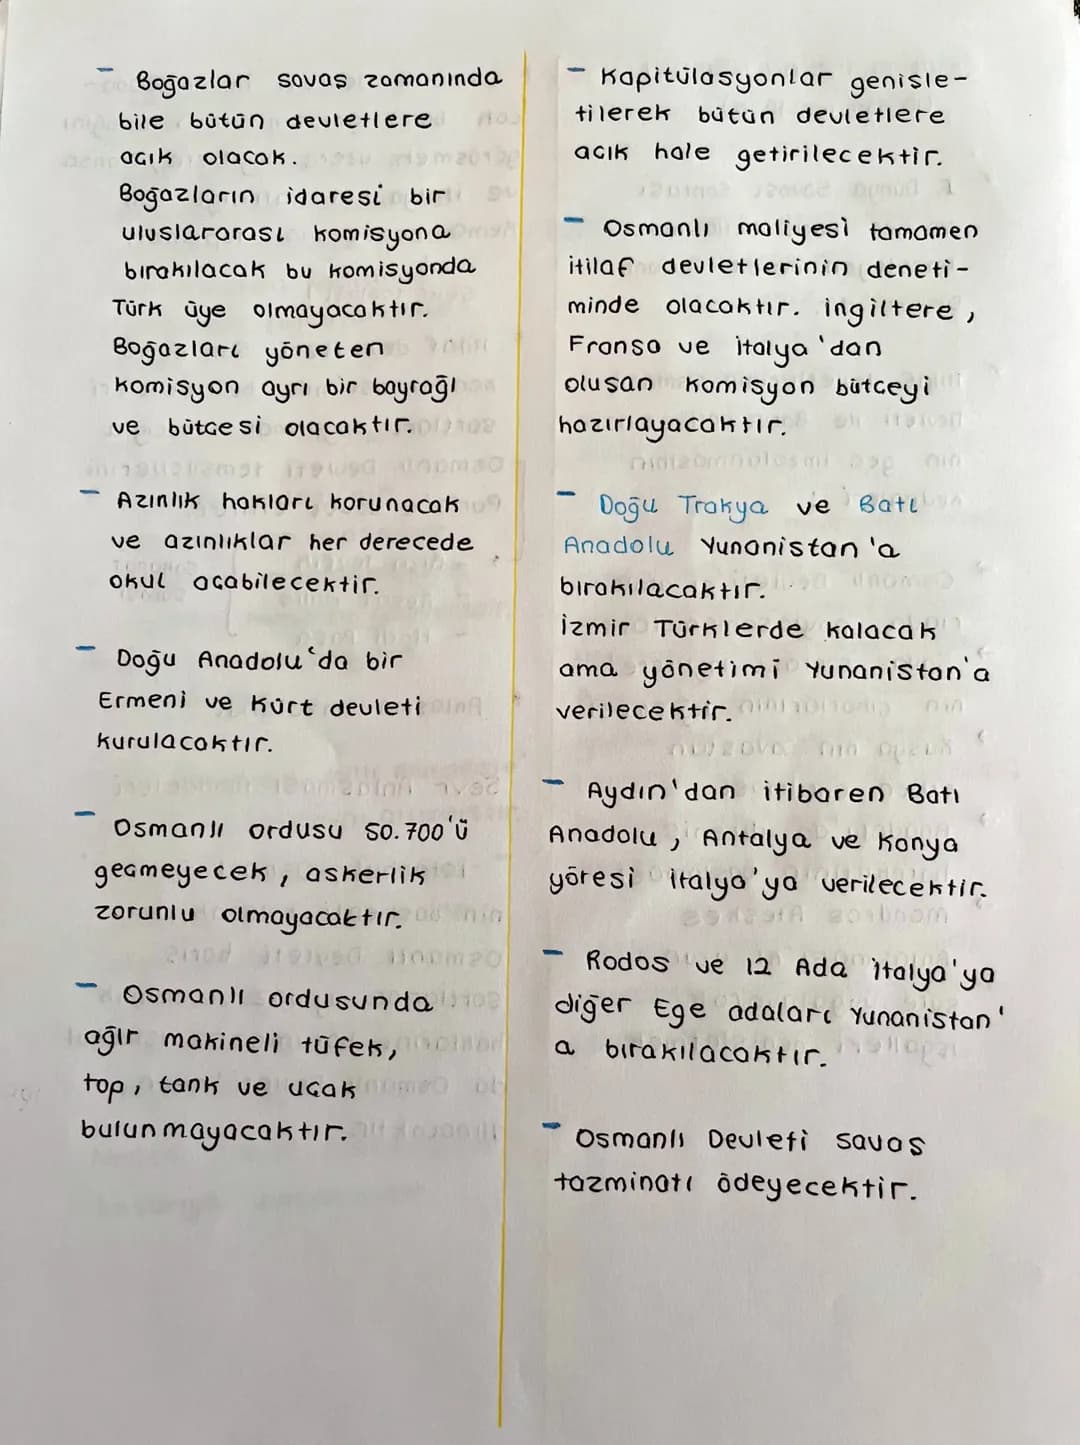 - Boğazlar savaş zamanında
bile bütün devletlere
açık olacak.
Boğazların idaresi bir
uluslararası komisyona
bırakılacak bu komisyonda
Türk üye olmayacaktır.
Boğazları yöneten
komisyon ayrı bir bayrağı
ve bütçesi olacaktır.
- Azınlık hakları korunacak
ve azınlıklar her derecede
okul açabilecektir.
- Doğu Anadolu'da bir
Ermeni ve Kürt devleti
kurulacaktır.
- Osmanlı ordusu 50.700'ü
geçmeyecek, askerlik
zorunlu olmayacaktır.
- Osmanlı ordusunda
ağır makineli tüfek,
top, tank ve uçak
bulunmayacaktır.
- Kapitülasyonlar genişle-
tilerek bütün devletlere
açık hale getirilecektir.
- Osmanlı maliyesi tamamen
itilaf devletlerinin deneti-
minde olacaktır. ingiltere,
Fransa ve italya'dan
oluşan komisyon bütçeyi
hazırlayacaktır.
- Doğu Trakya ve Batı
Anadolu Yunanistan'a
bırakılacaktır.
İzmir Türklerde kalacak
ama yönetimi Yunanistan'a
verilecektir.
- Aydın'dan itibaren Batı
Anadolu, Antalya ve Konya
yöresi italya'ya verilecektir.
- Rodos ve 12 Ada italya'ya
diğer Ege adaları Yunanistan'
a bırakılacaktır.
- Osmanlı Devleti savaş
tazminatı ödeyecektir.